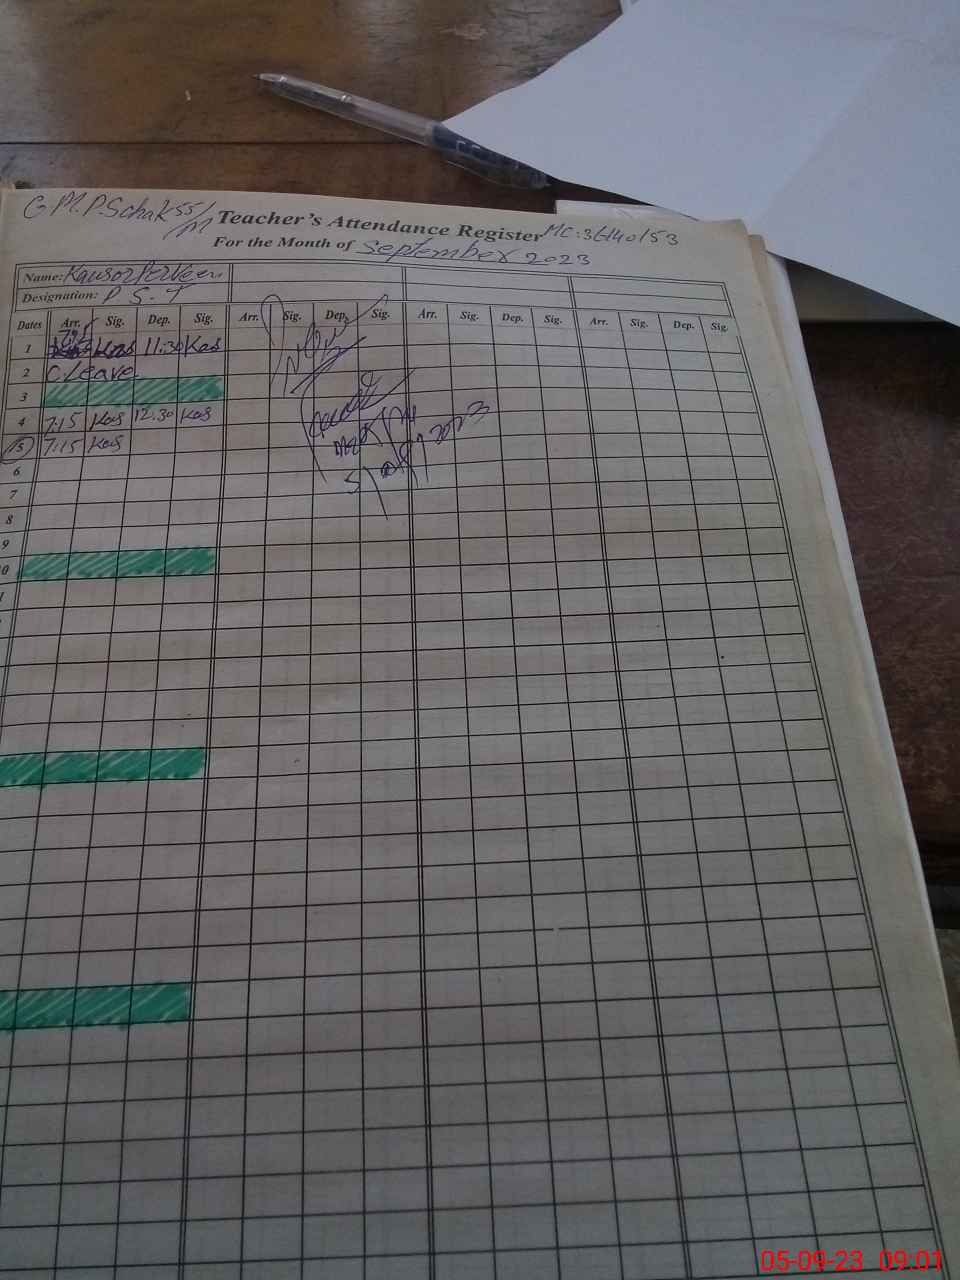 G.M.P.S chak 55/M
Teacher's Attendance Register MC:36140153
For the Month of September 2023
Name: Kausar Parveen
Designation: P.S.T
Dates Arr. Sig. Dep. Sig. Arr. Sig. Dep. Sig. Arr. Sig. Dep. Sig. Arr. Sig. Dep. Sig.
1 Kas 11:30 Kas
2 C.Leave
3
4 7:15 Kas 12:30 Kas
5 7:15 Kas
6
7
8
9
05-09-23 09:01